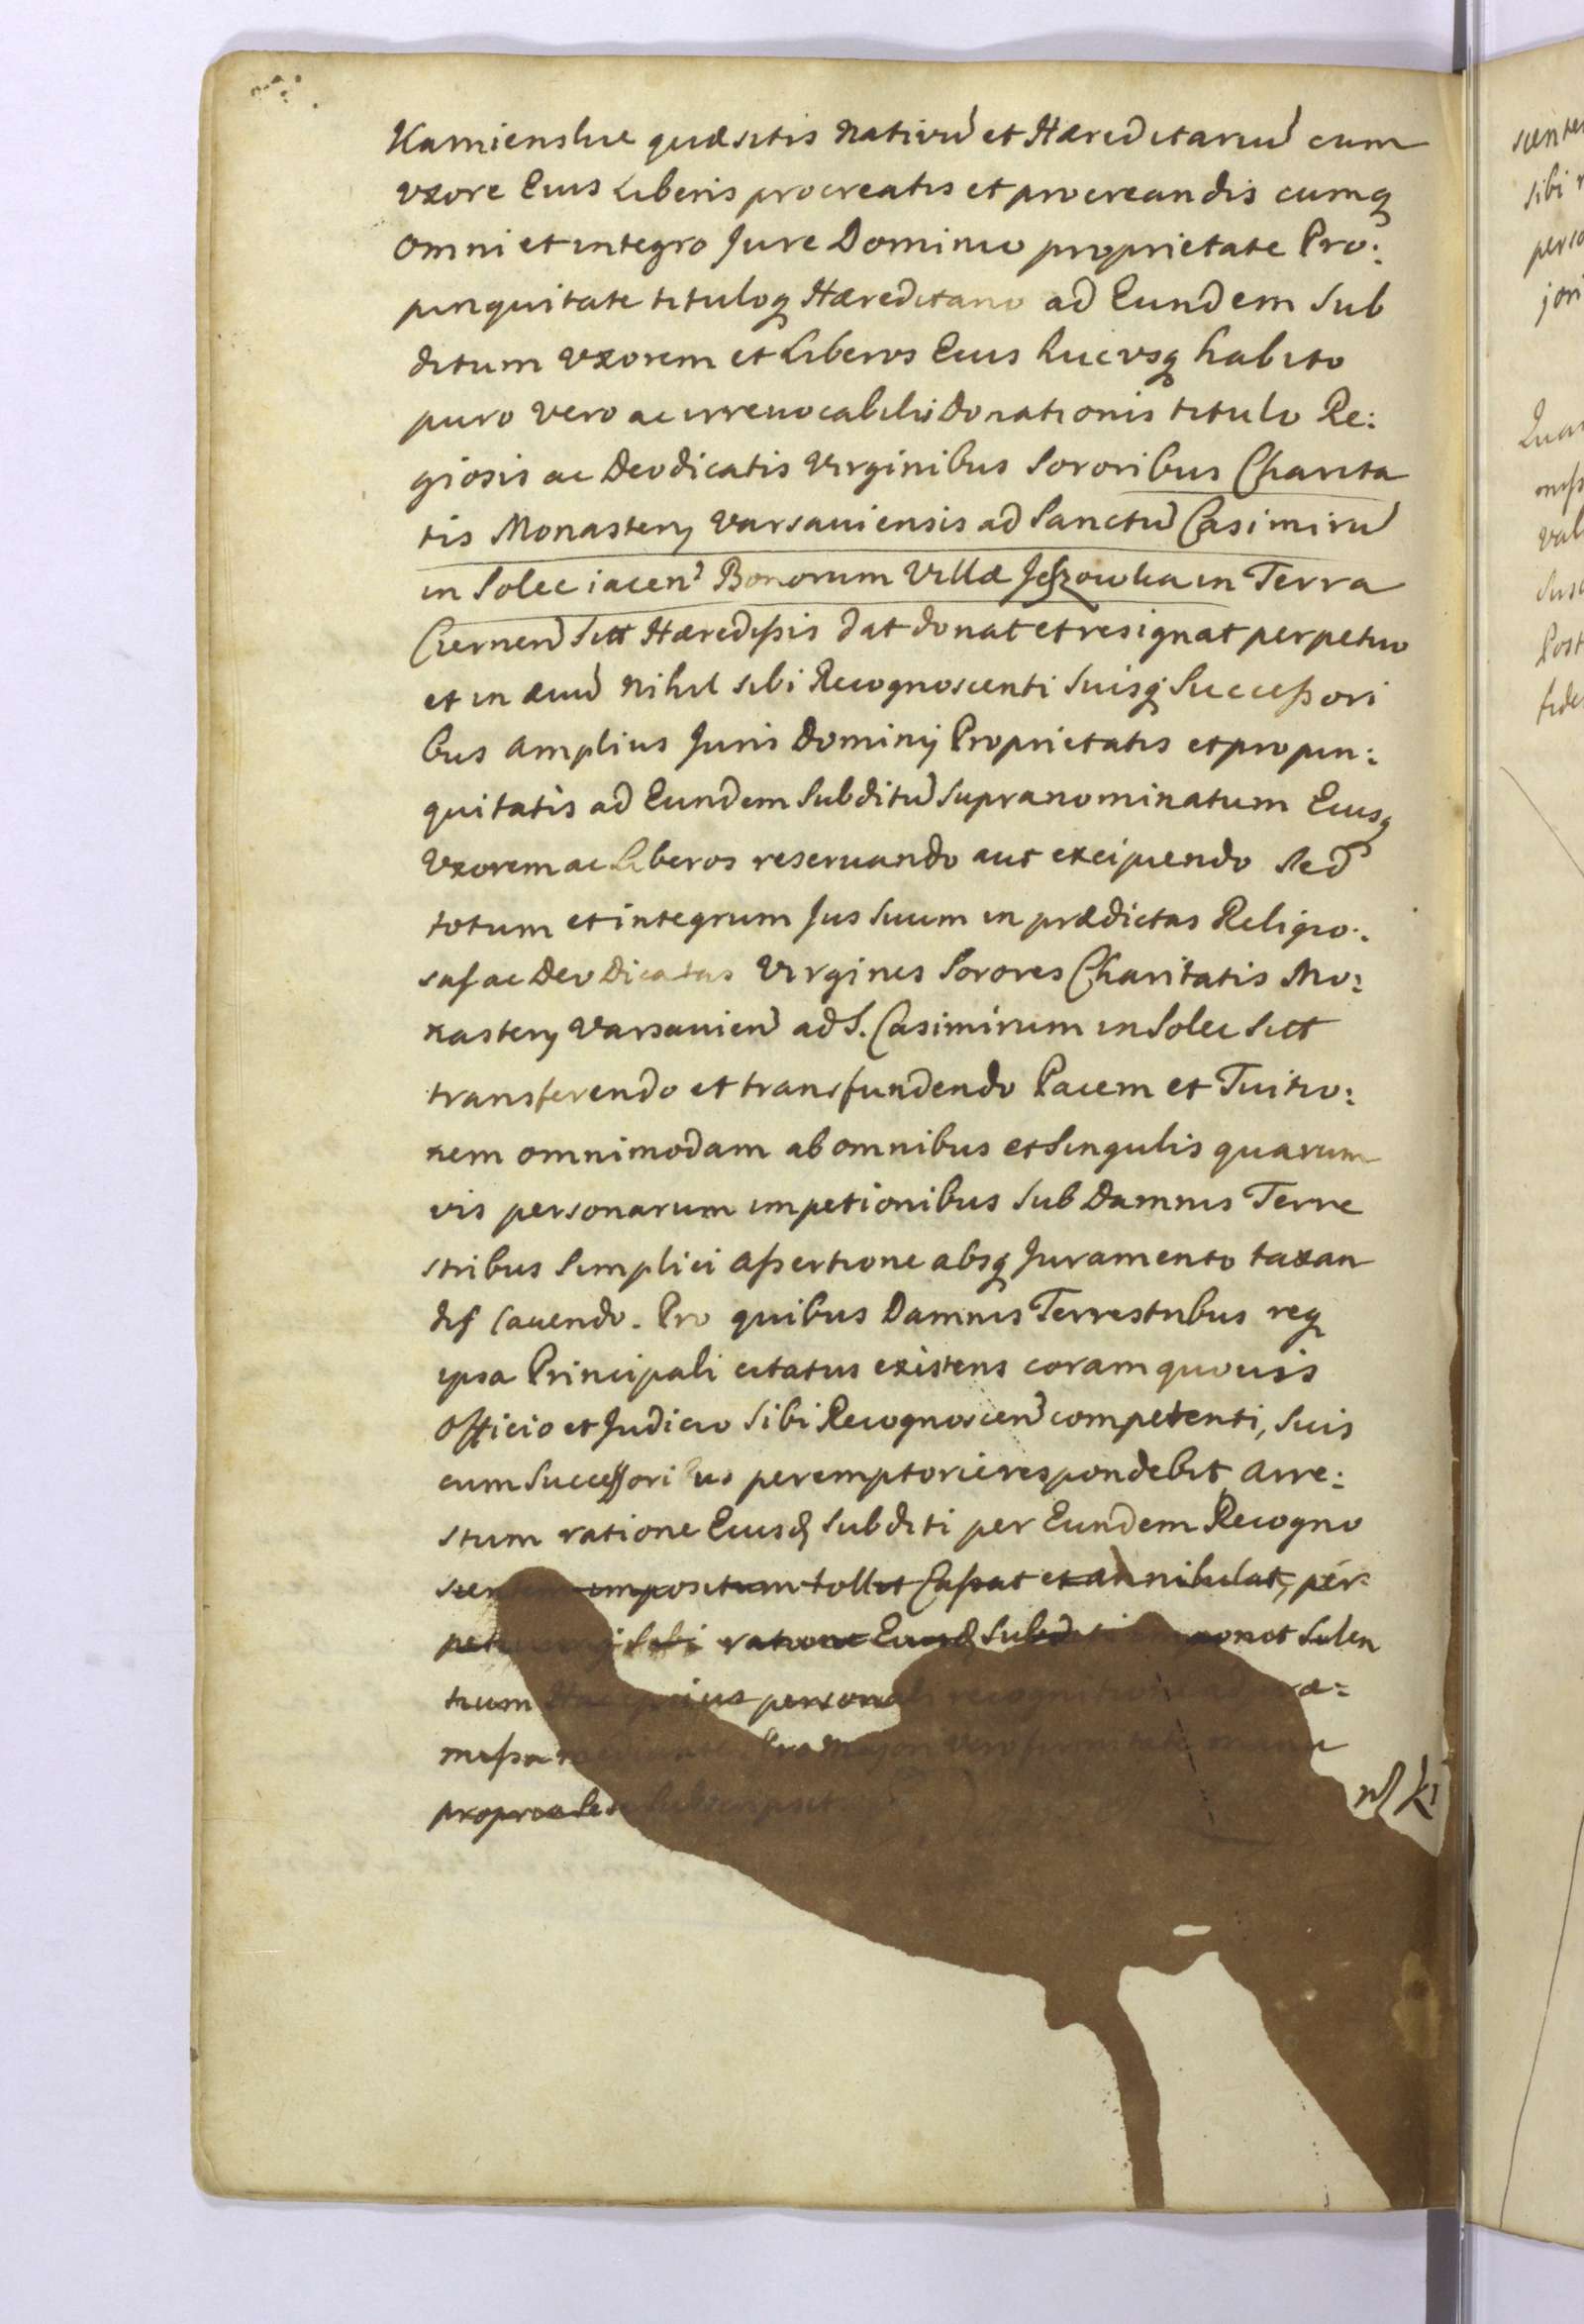 Kamienskie quæsitis Nativũ et Hæreditariũ cum
vxore Eius Liberis procreatis et procreandis cumq
omni et integro Jure Dominio proprietate Pro:
pinquitate tituloq Hæreditario ad Eundem Sub
ditum Vxorem et Liberos Eius hucvsq habito
puro vero ac irreuocabilis Donationis titulo Re:
giosis ac Deodicatis Virginibus Sororibus Charita
tis Monastery Varsauiensis ad Sanctũ Casimirũ
in Solec iacen Bonorum Villæ in Terra
Czernen Sitt Hæredißis dat donat et resignat perpetuo
et in æuũ Nihil sibi Recognoscenti Suisq Succeßori
bus amplius Juris Dominij Proprietatis et propin:
quitatis ad Eundem Subditũ Supranominatum Eiusq
Vxorem ac Liberos reseruando aut excipiendo Sed
totum et integrum Jus Suum in prædictas Religio:
sas ac Deo Dicatas Virgines Sorores Charitatis Mo:
nastery Varsauien ad S. Casimirum in Solec Sitt
transferendo et transfundendo Pacem et Tuitio:
nem omnimodam ab omnibus et Singulis quarum
vis personarum impetionibus Sub Damnis Terre
stribus Simplici Aßertione absq Juramento taxan
dis Cauendo. Pro quibus Damnis Terrestribus req
ipsa Principali citatus existens coram quouis
Officio et Judicio Sibi Recognoscen competenti, Suis
cum Successoribus peremptorie respondebit Arre:
stum ratione Eiusd Subditi per Eundem Recogno
scentem impositum tollit Caßat et annihilat, per:
ratione Eiusd Subditi imponit Silen
tium personali recognitione
mißa mediante. Pro Majori vero firmitate manu
propria Se Subscripsit